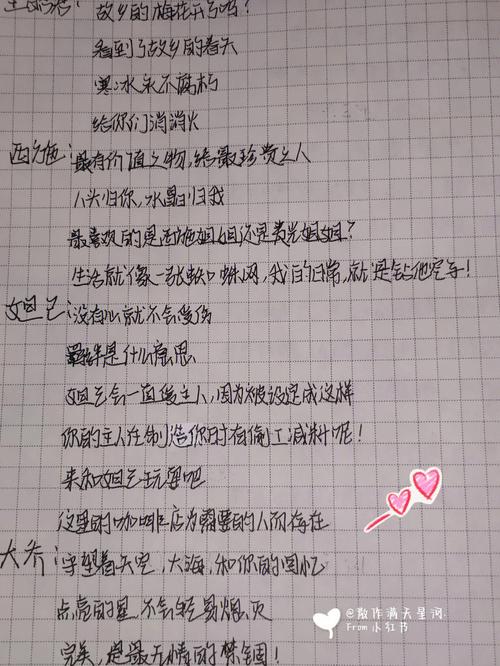 王昭君：故乡的梅花开了吗？
看到了故乡的春天
寒冰永不腐朽
给你们消消火
西施：最有价值之物，给最珍贵之人
人头归你，水晶归我
最喜欢的是西施姐姐还是贵妃姐姐？
生活就像一张蜘蛛网，我的日常，就是钻他空子！
妲己：没有心就不会受伤
羁绊是什么意思
妲己会一直爱主人，因为被设定成这样
你的主人在制造你时有偷工减料呢！
来和妲己玩耍吧
这里的咖啡店为需要的人而存在
大乔：守望着天空，大海，和你的回忆
点亮的星，不会轻易熄灭
完美，是最无情的禁锢！
@散作满天星河
From 小红书